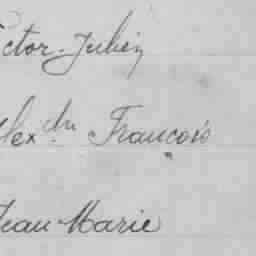 ctor-Julien
lexdre François
Jean-Marie